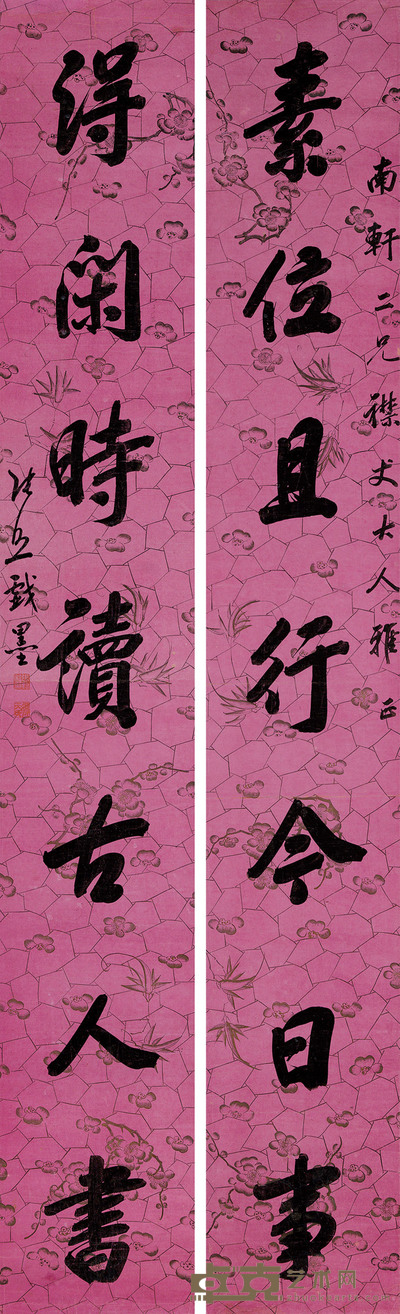 南軒二兄襟丈大人雅正
素位且行今日事
得閑時讀古人書
戲墨
卓克艺术网